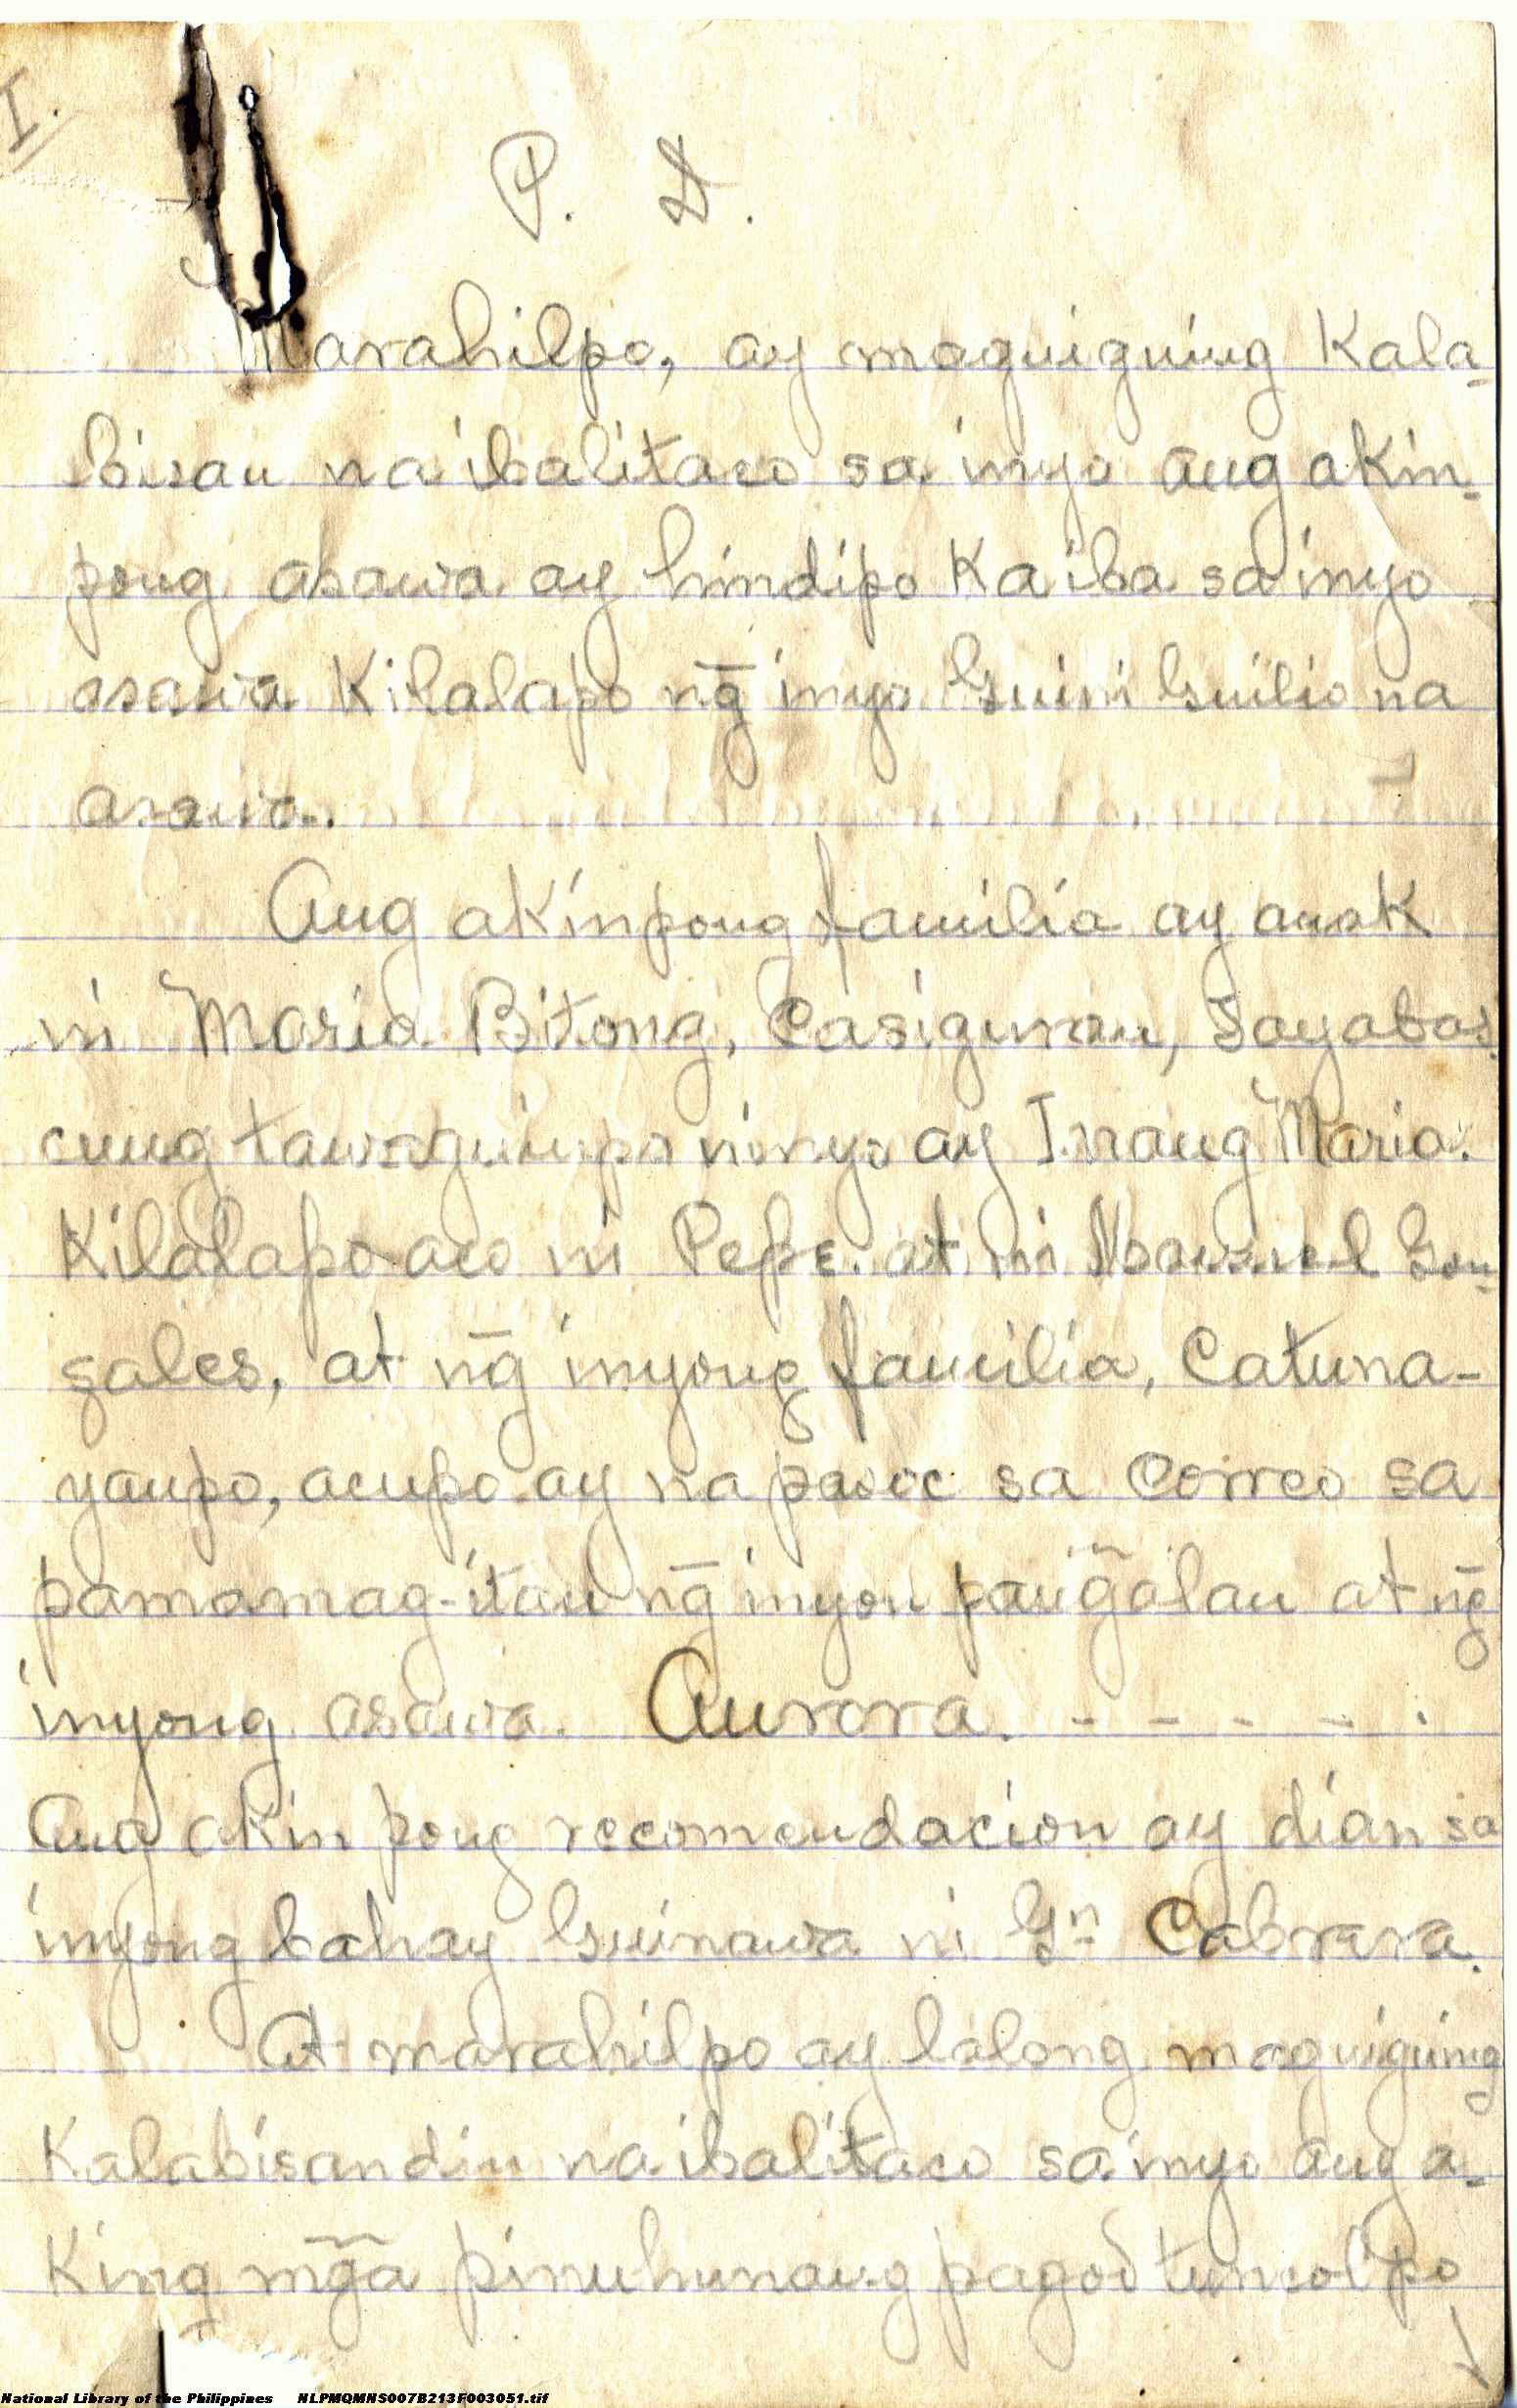 I.
P. D.
Marahilpo, ay maguiguing Kala-
bisan na ibalitaco sa inyo ang akin-
pong asawa ay hindipo Kaiba sa inyo
asawa Kilalapo n̄g inyo Guini Guilio na
asawa.
Ang akinpong familia ay anak
ni Maria Bitong, Casiguran, Tayabas.
cung tawaguinpo ninyo ay Inang Maria.
Kilalapo aco ni Pepe. at ni Manuel Gon-
zales, at n̄g inyong familia, Catuna-
yanpo, acupo ay na pasoc sa Correo sa
pamamag-itan n̄g inyon pan̄galan at n̄g
inyong asawa. Aurora. - - - - .
Ang akin pong recomendacion ay dian sa
inyong bahay Guinawa ni Gn Cabrara.
At marahilpo ay lalong maguiguing
Kalabisandin na ibalitaco sa inyo ang a-
King mg̃a pinuhunang pagod tuncol po
National Library of the Philippines NLPMQMNS007B213F003051.tif